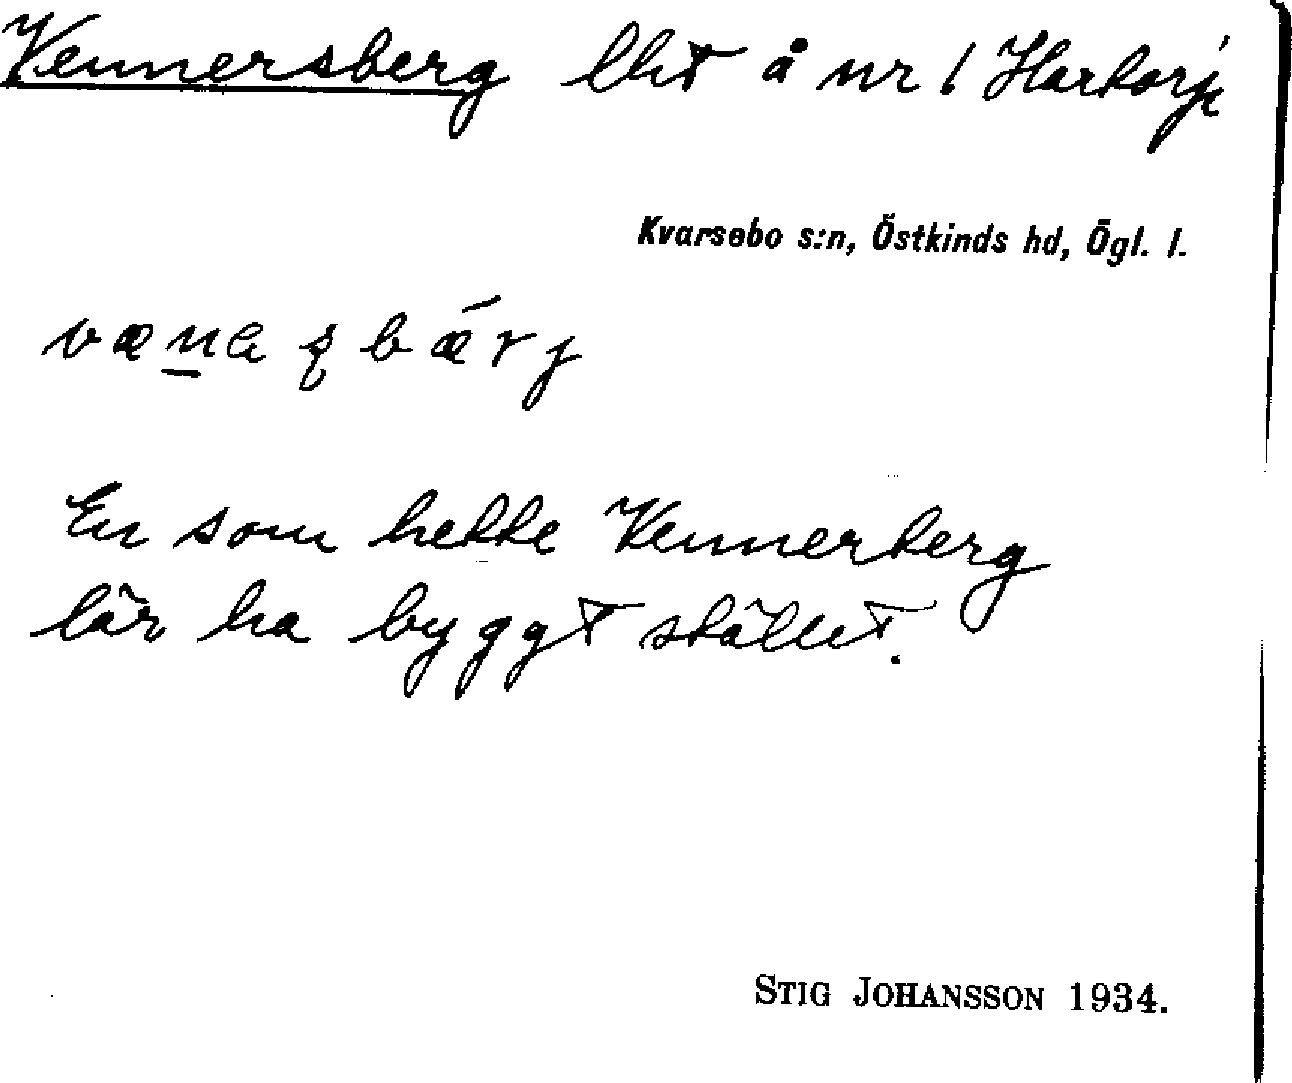 Vennersberg lht å nr 1 Hartorp
Kvarsebo s:n, Östkinds hd, Ögl. l.
En som hette Vennerberg
lär ha byggt stället.
STIG JOHANSSON 1934.